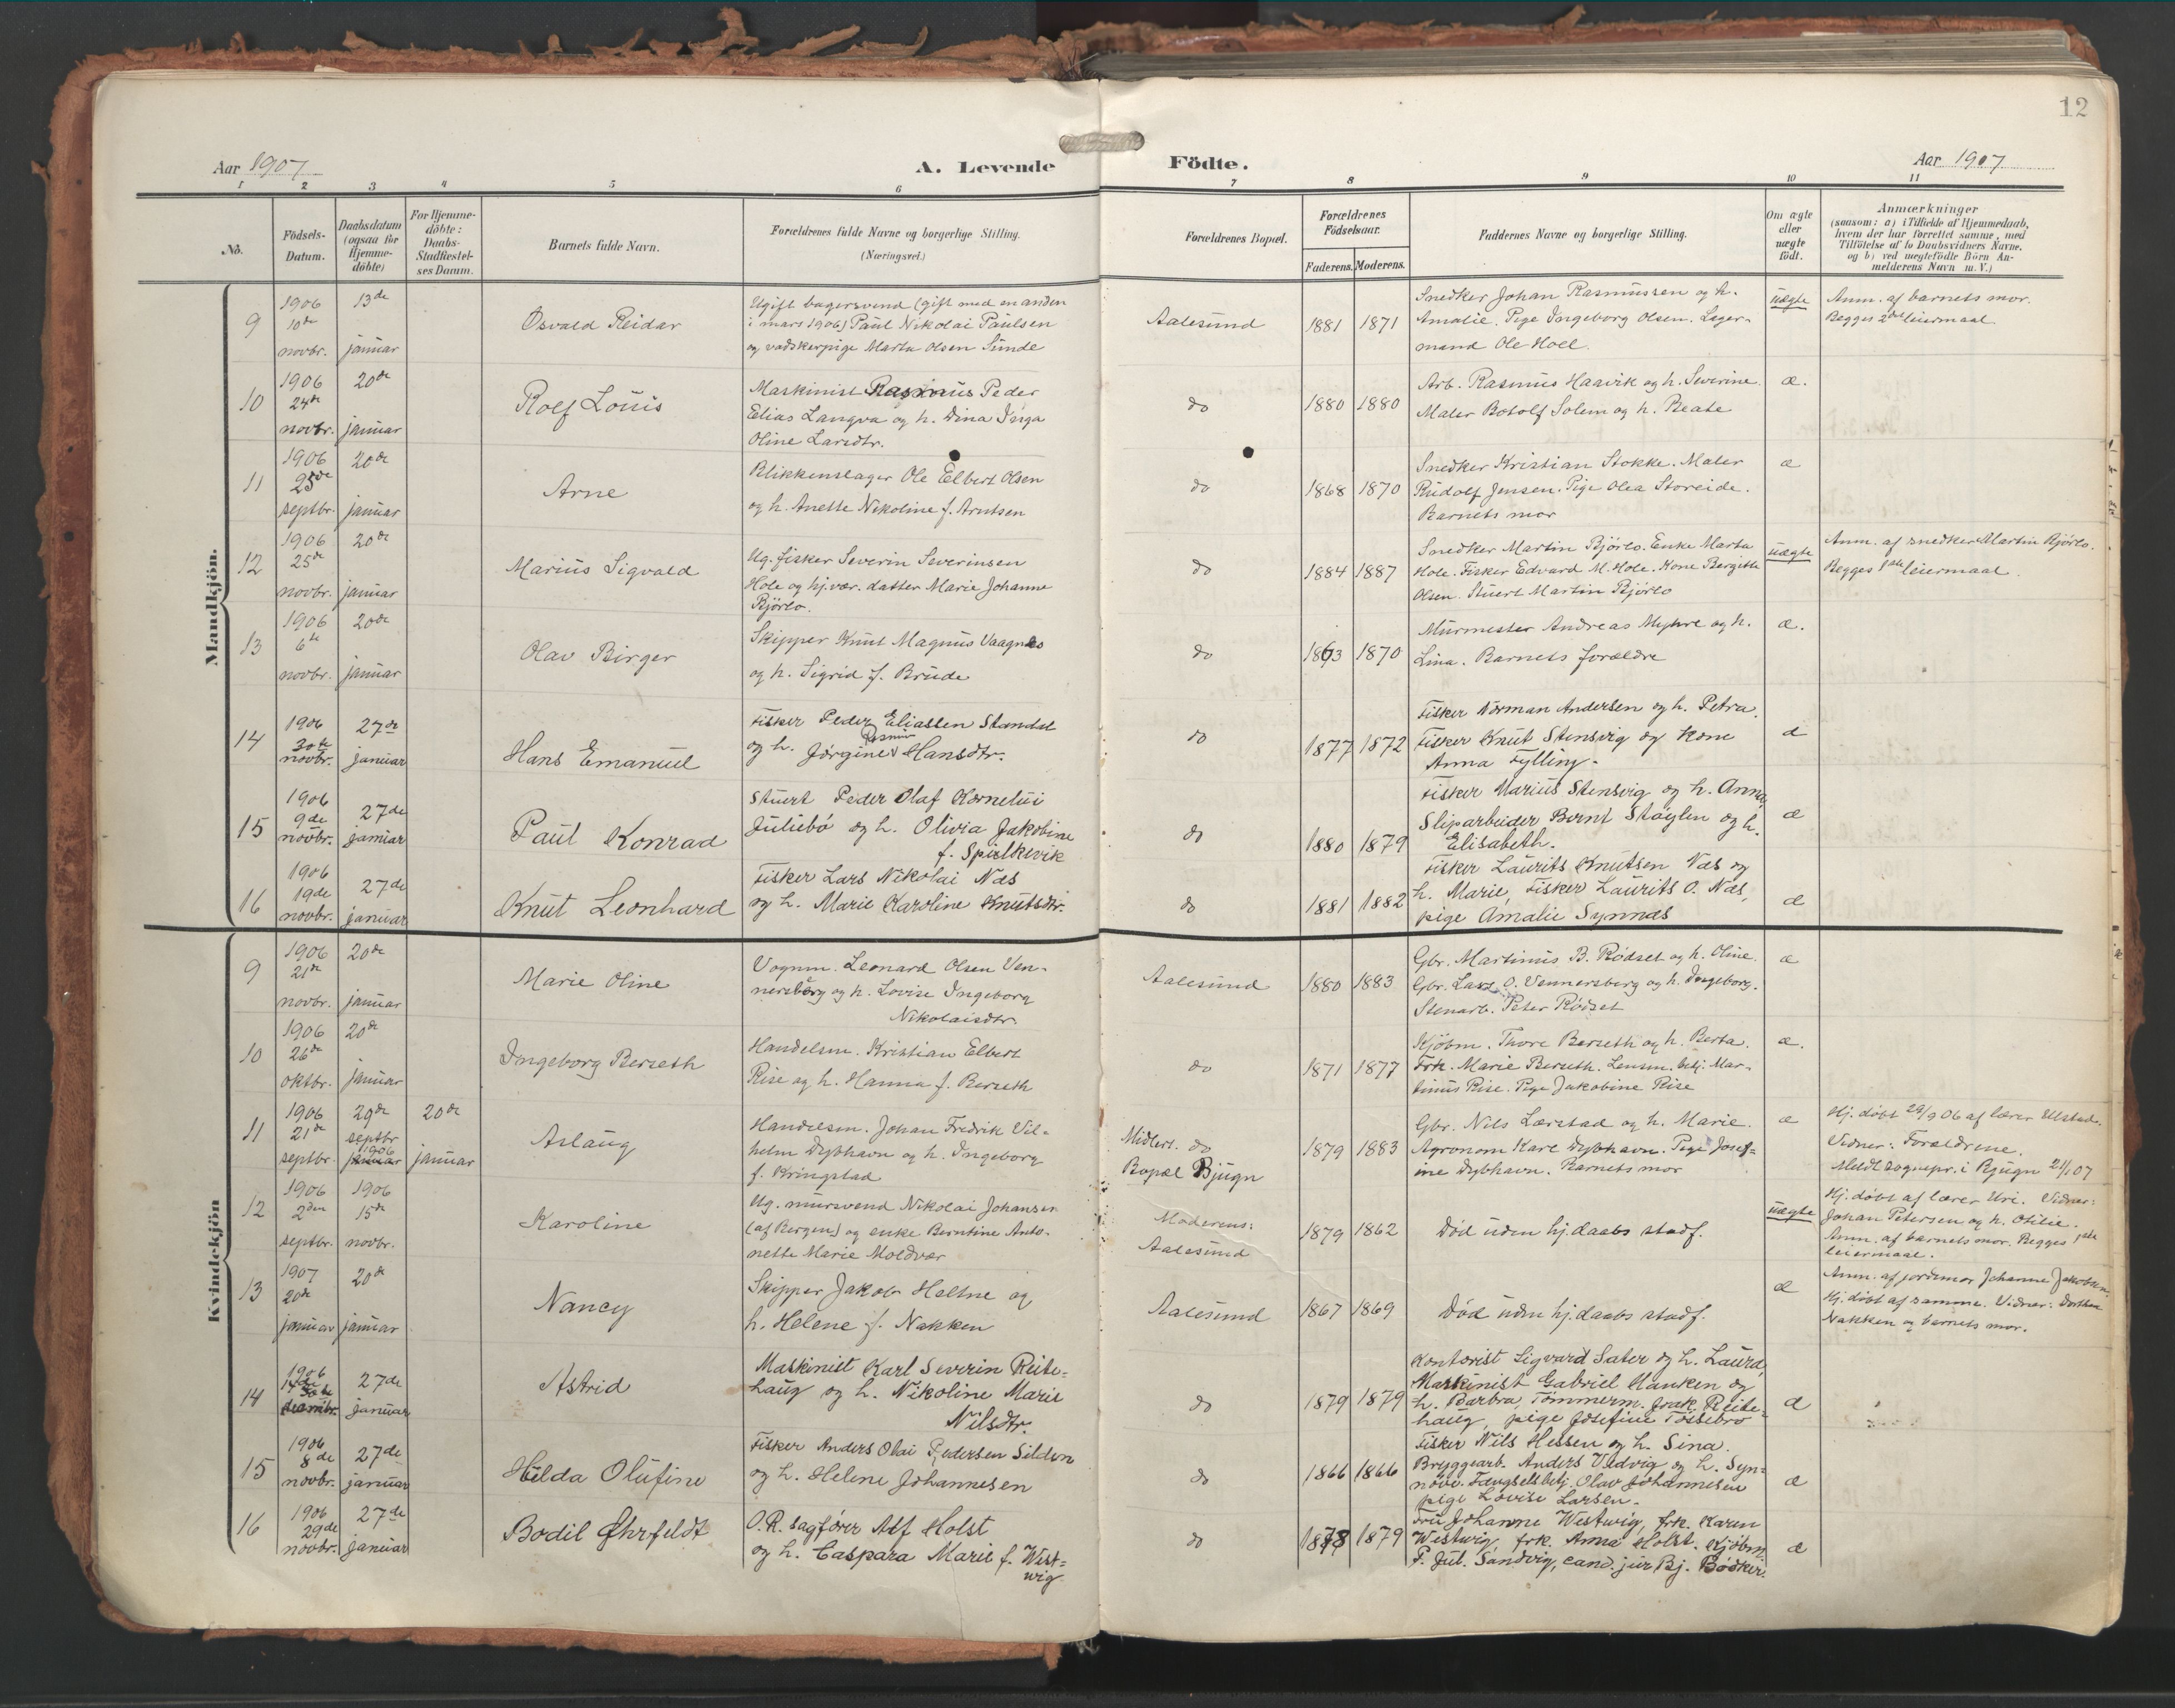 12
Aar 1907
A. Levende
Födte.
Aar 1907
1 2 3 4 5 6 7 8 9 10 11
No.
Födsels-
Datum.
Daabsdatum
(ogsaa for
Hjemme-
döbte)
For Hjemme-
döbte:
Daabs-
Stadfæstel-
ses Datum.
Barnets fulde Navn.
Forældrenes fulde Navne og borgerlige Stilling.
(Næringsvei.)
Forældrenes Bopæl.
Forældrenes
Födselsaar.
Faderens. Moderens.
Faddernes Navne og borgerlige Stilling.
Om ægte
eller
uægte
födt.
Anmærkninger
(saasom: a) i Tilfælde af Hjemmedaab,
hvem der har forrettet samme, med
Tilföielse af to Daabsvidners Navne.
og b) ved uægtefödte Börn An-
melderens Navn m. V.)
Mandkjön.
9
1906
10de
novbr.
13de
januar
Osvald Reidar
Ugift bagersvend (gift med en anden
i mars 1906) Paul Nikolai Paulsen
og vadskerpige Marta Olsen Sunde
Aalesund
1881 1871
Snedker Johan Rasmussen og h.
Amalie. Pige Ingeborg Olsen. Lager-
mand Ole Hoel.
uægte
Anm. af barnets mor.
Begges 2det leiermaal
10
1906
24de
novbr.
20de
januar
Rolf Louis
Maskinist Rasmus Peder
Elias Langva og h. Dina Inga
Oline Larsdtr.
do
1880 1880
Arb. Rasmus Haavik og h. Severine.
Maler Botolf Solem og h. Beate
æ.
11
1906
25de
septbr.
20de
januar
Arne
Blikkenslager Ole Elbert Olsen
og h. Anette Nikoline f. Arntsen
do
1868 1870
Snedker Kristian Stokke. Maler
Rudolf Jensen. Pige Olea Storeide.
Barnets mor
æ
12
1906
25de
novbr.
20de
januar
Marius Sigvald
Ug. fisker Severin Severinsen
Hole og hj.vær. datter Marie Johanne
Bjørlo.
do
1884 1887
Snedker Martin Bjørlo. Enke Marta
Hole. Fisker Edvard M. Hole. Kone Bergitte
Olsen. Stuert Martin Bjørlo
uægte
Anm. af snedker Martin Bjørlo.
Begges 1ste leiermaal.
13
1906
6te
novbr.
20de
januar
Olav Birger
Skipper Knut Magnus Vaagnes
og h. Sigrid f. Brude
do
1863 1870
Murmester Andreas Myhre og h.
Lina. Barnets forældre
æ.
14
1906
30te
novbr.
27de
januar
Hans Emanuel
Fisker Peder Eliassen Standal
og h. Jørgine Rasmine Hansdtr.
do
1877 1872
Fisker Norman Andersen og h. Petra.
Fisker Knut Stensvig og kone
Anna Fylling.
æ
15
1906
9de
novbr.
27de
januar
Paul Konrad
Stuert Peder Olaf Kornelui
Juliebö og h. Olivia Jakobine
f. Spjelkevik
do
1880 1879
Fisker Marius Stensvig og h. Anna,
Sliparbeider Bernt Støylen og h.
Elisabeth.
æ
16
1906
19de
novbr.
27de
januar
Knut Leonhard
Fisker Lars Nikolai Næs
og h. Marie Karoline Knutsdtr.
do
1881 1882
Fisker Laurits Knutsen Næs og
h. Marie, Fisker Laurits O. Næs,
pige Amalie Synnæs
æ
Kvindekjön
9
1906
21de
novbr.
20de
januar
Marie Oline
Vognm. Leonard Olsen Ven-
nersberg og h. Lovise Ingeborg
Nikolaisdtr.
Aalesund
1880 1883
Gbr. Martinus B. Rødset og h. Oline.
Gbr. Lars O. Vennersberg og h. Ingeborg.
Stenarb. Peter Rødset
æ
10
1906
26de
oktbr.
20de
januar
Ingeborg Berseth
Handelsm. Kristian Elbert
Rise og h. Hanna f. Berseth
do
1871 1877
Kjöbm. Thore Berseth og h. Berta.
Frk. Marie Berseth. Lensm. betj. Mar-
tinus Rise. Pige Jakobine Rise
æ.
11
1906
21de
septbr.
29de
septbr
1906
januar
20de
januar
Aslaug
Handelsm. Johan Fredrik Vil-
helm Dybhavn og h. Ingeborg
f. Bringstad
Midlert. do
Bopæl Bjugn
1879 1883
Gbr. Nils Lærstad og h. Marie.
Agronom Karl Dybhavn. Pige Josef-
ine Dybhavn. Barnets mor
æ
Hj. døbt 29/9 06 af lærer Ulstad.
Vidner: Forældrene.
Meldt sognepr. i Bjugn 21/1 07
12
1906
2den
septbr.
1906
15de
novbr.
Karoline
Ug. mursvend Nikolai Johansen
(af Bergen) og enke Berntine Anto-
nette Marie Moldvær
Moderens:
Aalesund
1879 1862
Død uden hj.daabs stadf.
uægte
Hj. døbt af lærer Uri. Vidner:
Johan Petersen og h. Otilie.
Anm. af barnets mor. Begges 1ste
leiermaal.
13
1907
20de
januar
20de
januar
Nancy
Skipper Jakob Heltne og
h. Helene f. Nakken
Aalesund
1867 1869
Død uden hj.daabs stadf.
æ
Anm. af jordemor Johanne Jakobsen
Hj. døbt af samme. Vidner: Dorthea
Nakken og barnets mor.
14
1906
14de
decembr.
27de
januar
Astrid
Maskinist Karl Severin Reite-
haug og h. Nikoline Marie
Nilsdtr.
do
1879 1879
Kontorist Sigvard Sater og h. Laura,
Maskinist Gabriel Hanken og
h. Barbra, Tömmerm. Jrak. Reite-
haug, pige Josefine Tøssebro
æ
15
1906
8de
novbr.
27de
januar
Hilda Olufine
Fisker Anders Olai Pedersen Silden
og h. Helene Johannesen
do
1866 1866
Fisker Nils Hessen og h. Sina.
Bryggearb. Anders Vedvig og h. Syn-
növe. Fængselsbetj. Olav Johannesen
pige Lovise Larsen.
æ
16
1906
29de
novbr.
27de
januar
Bodil Ehrfeldt
O.R. sagfører Alf Holst
og h. Caspara Marie f. West-
wig
do
1878 1879
Fru Johanne Westwig, frk. Karen
Westwig, frk. Anna Holst. Kjöbm.
P. Jul. Sandvig, cand. jur Bj. Bödker.
æ